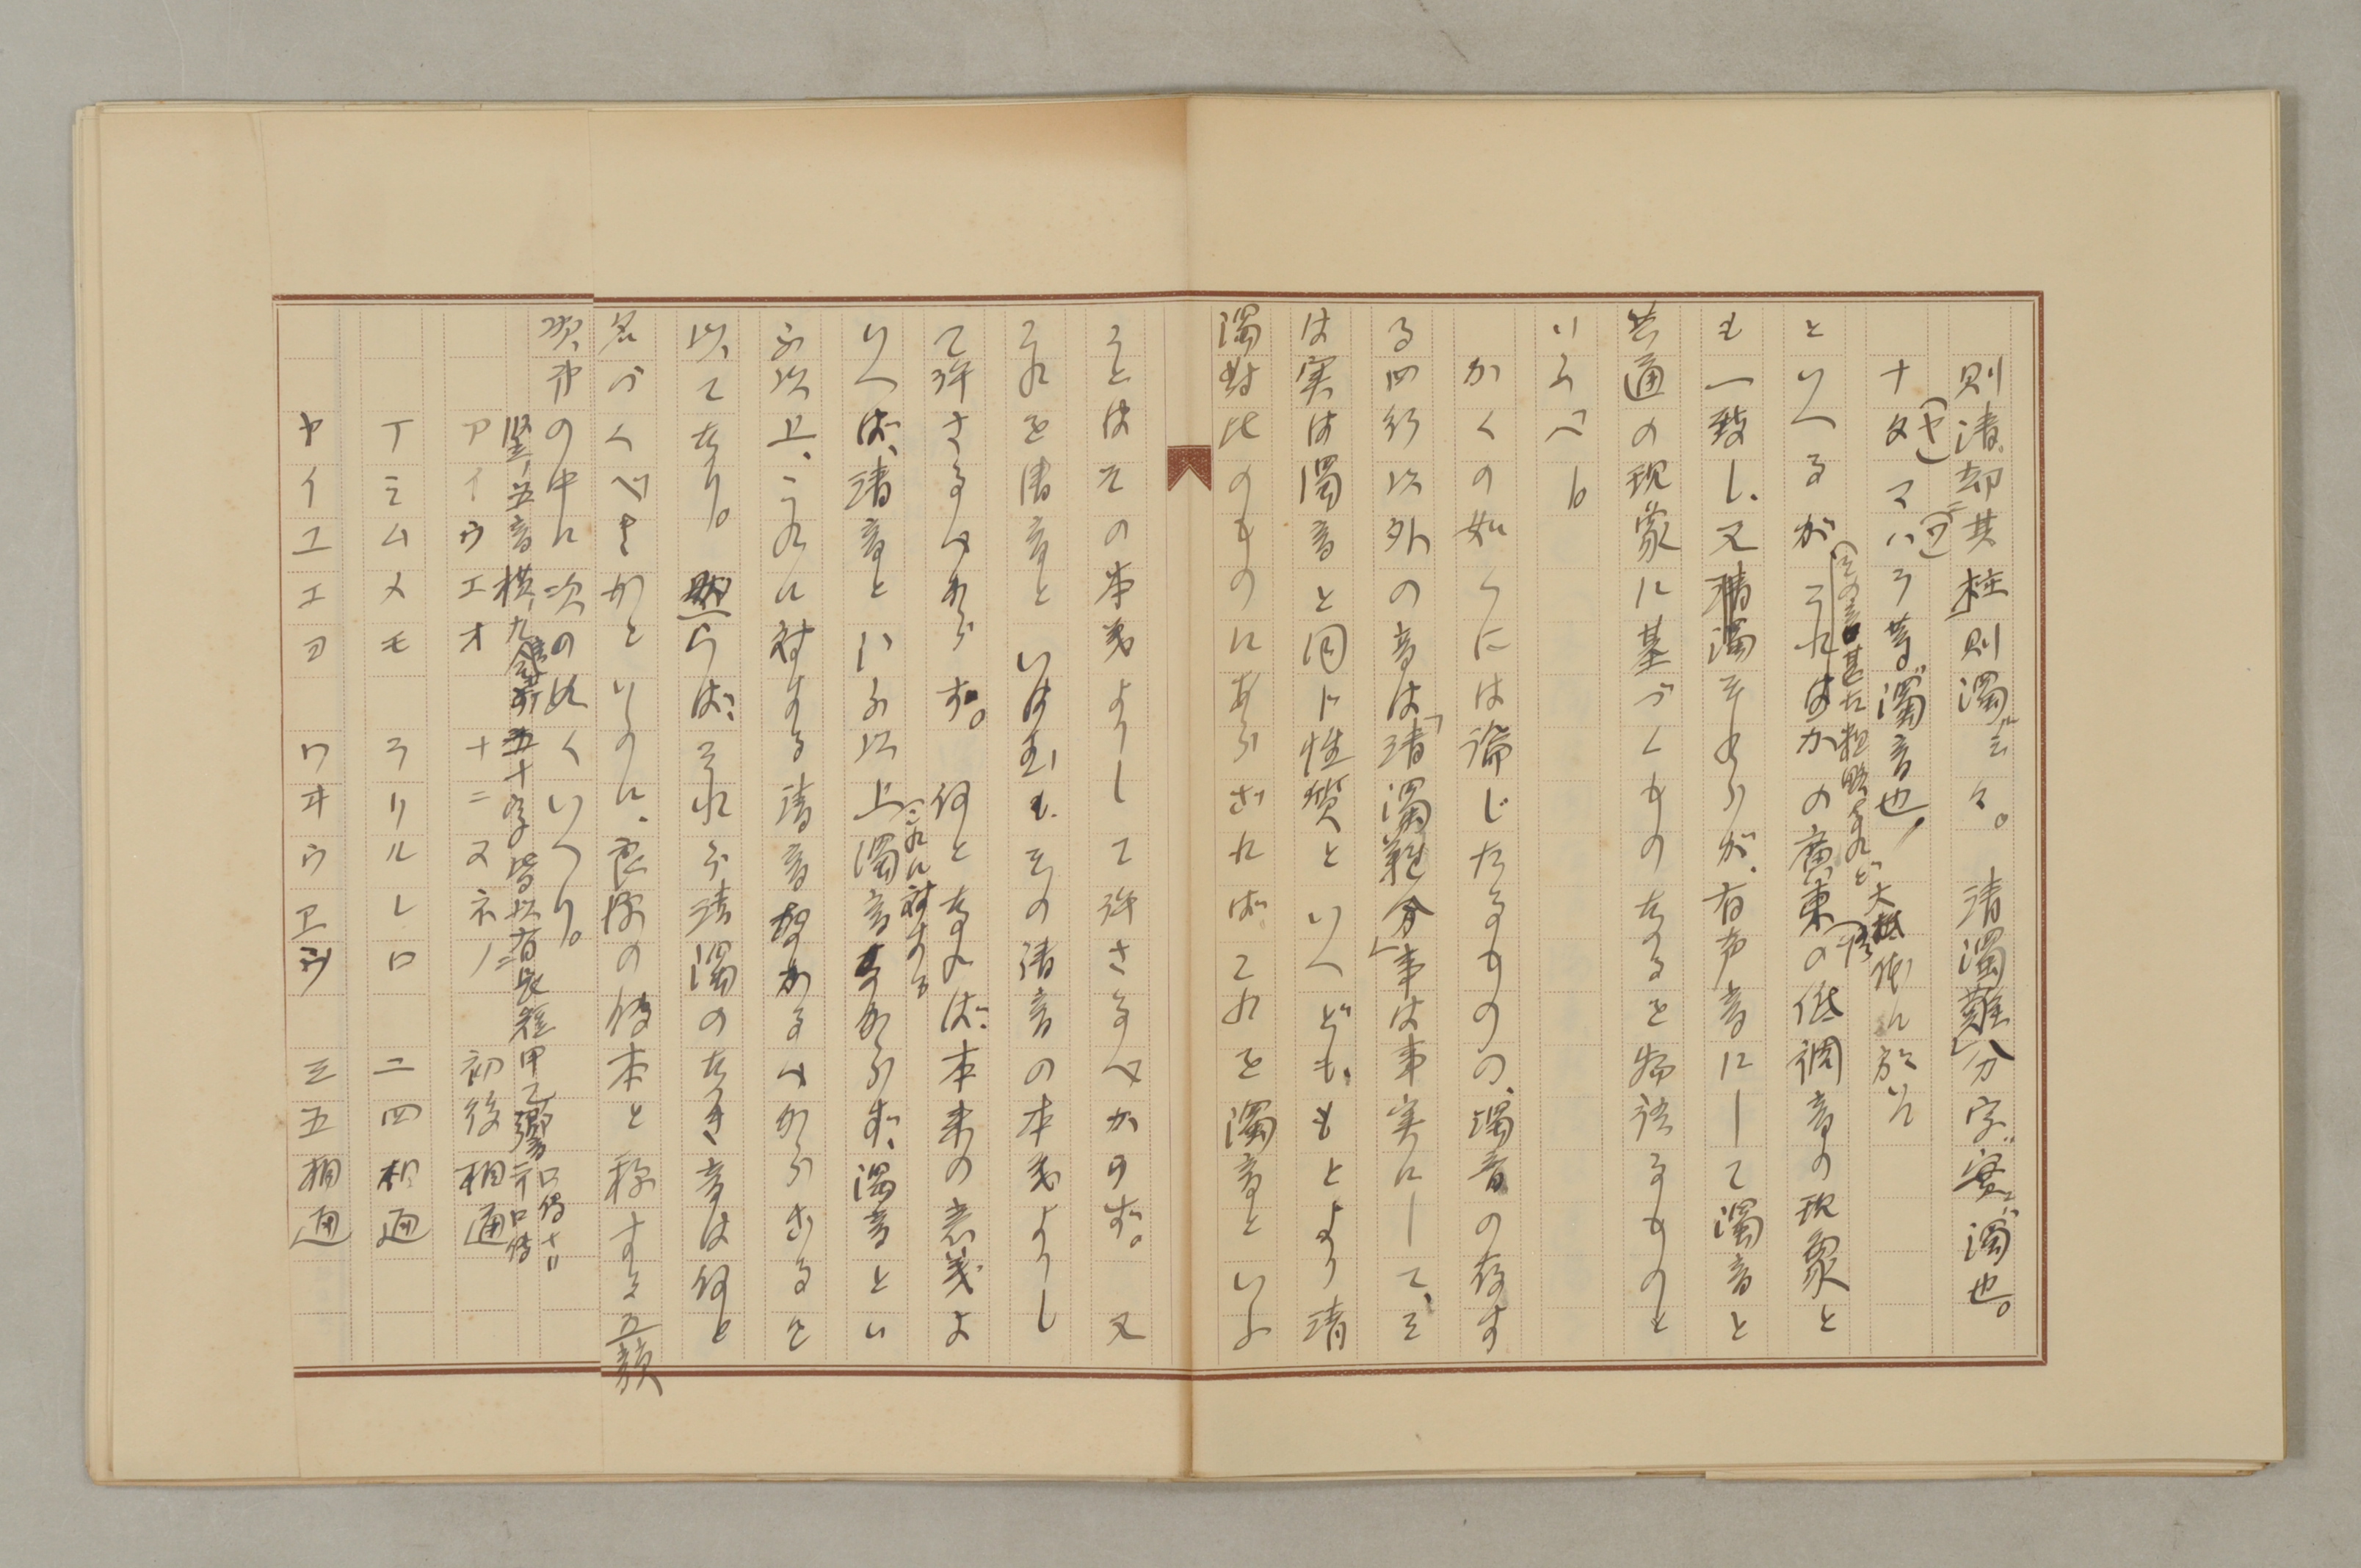 則清、却其柱則濁ル云々。清濁難分字ハ実ハ濁也。
ナタ(ヤ)マハ(ワ)ラ等ハ濁音也、
といへるが(その言甚だ粗略なれど大抵に於いて)これはかの廣東の低調音の現象と
も一致し、又清濁そのものが、有声音にして濁音と
共通の現象に基づくものなるを物語るものと
いふべし
かくの如くには論じたるものの、濁音の存す
る四行以外の音は「清濁難分」事は事実にして、そ
は実は濁音と同じ性質といへども、もとより清
濁対比のものにあらざればこれを濁音といふ
ことはその本義よりして許さるべからず。又
これを清音といはむも、その清音の本義よりし
て許さるべからず。何となれば、本来の意義よ
りいへば、清音といふ以上(これに対する)濁音なかるべからず、濁音とい
ふ以上、これに対する清音なかるべからざるを
以てなり。然らば、それら清濁のなき音は何と
名づくべきかといふのに、
頌、序の中に次のぬくいへり。
竪ノ五音横ノ九 五十字皆以有 甲乙 口伝
アイウエオ ナニヌネノ 初後相通
マミムメモ ラリルレロ 二四相通
ヤイユエヨ ワヰウヱヲ 三五相通